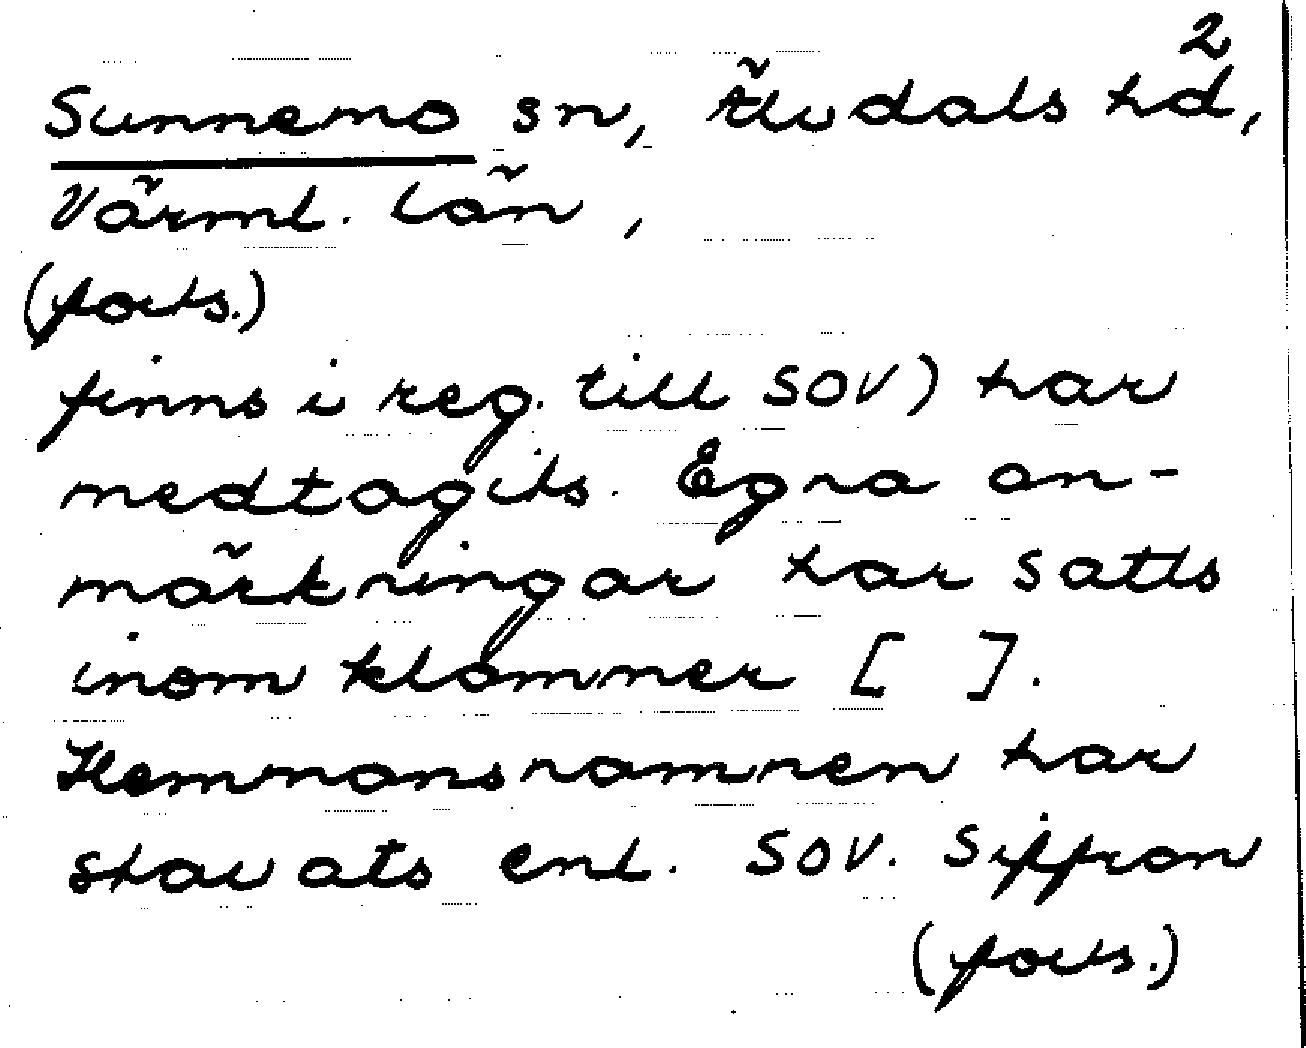 2
Sunnemo sn, Älvdals hd,
Värml. län,
(forts.)
finns i reg. till SOV) har
medtagits. Egna an-
märkningar har satts
inom klammer [ ].
Hemmansnamnen har
stavats enl. SOV. Siffran
(forts.)